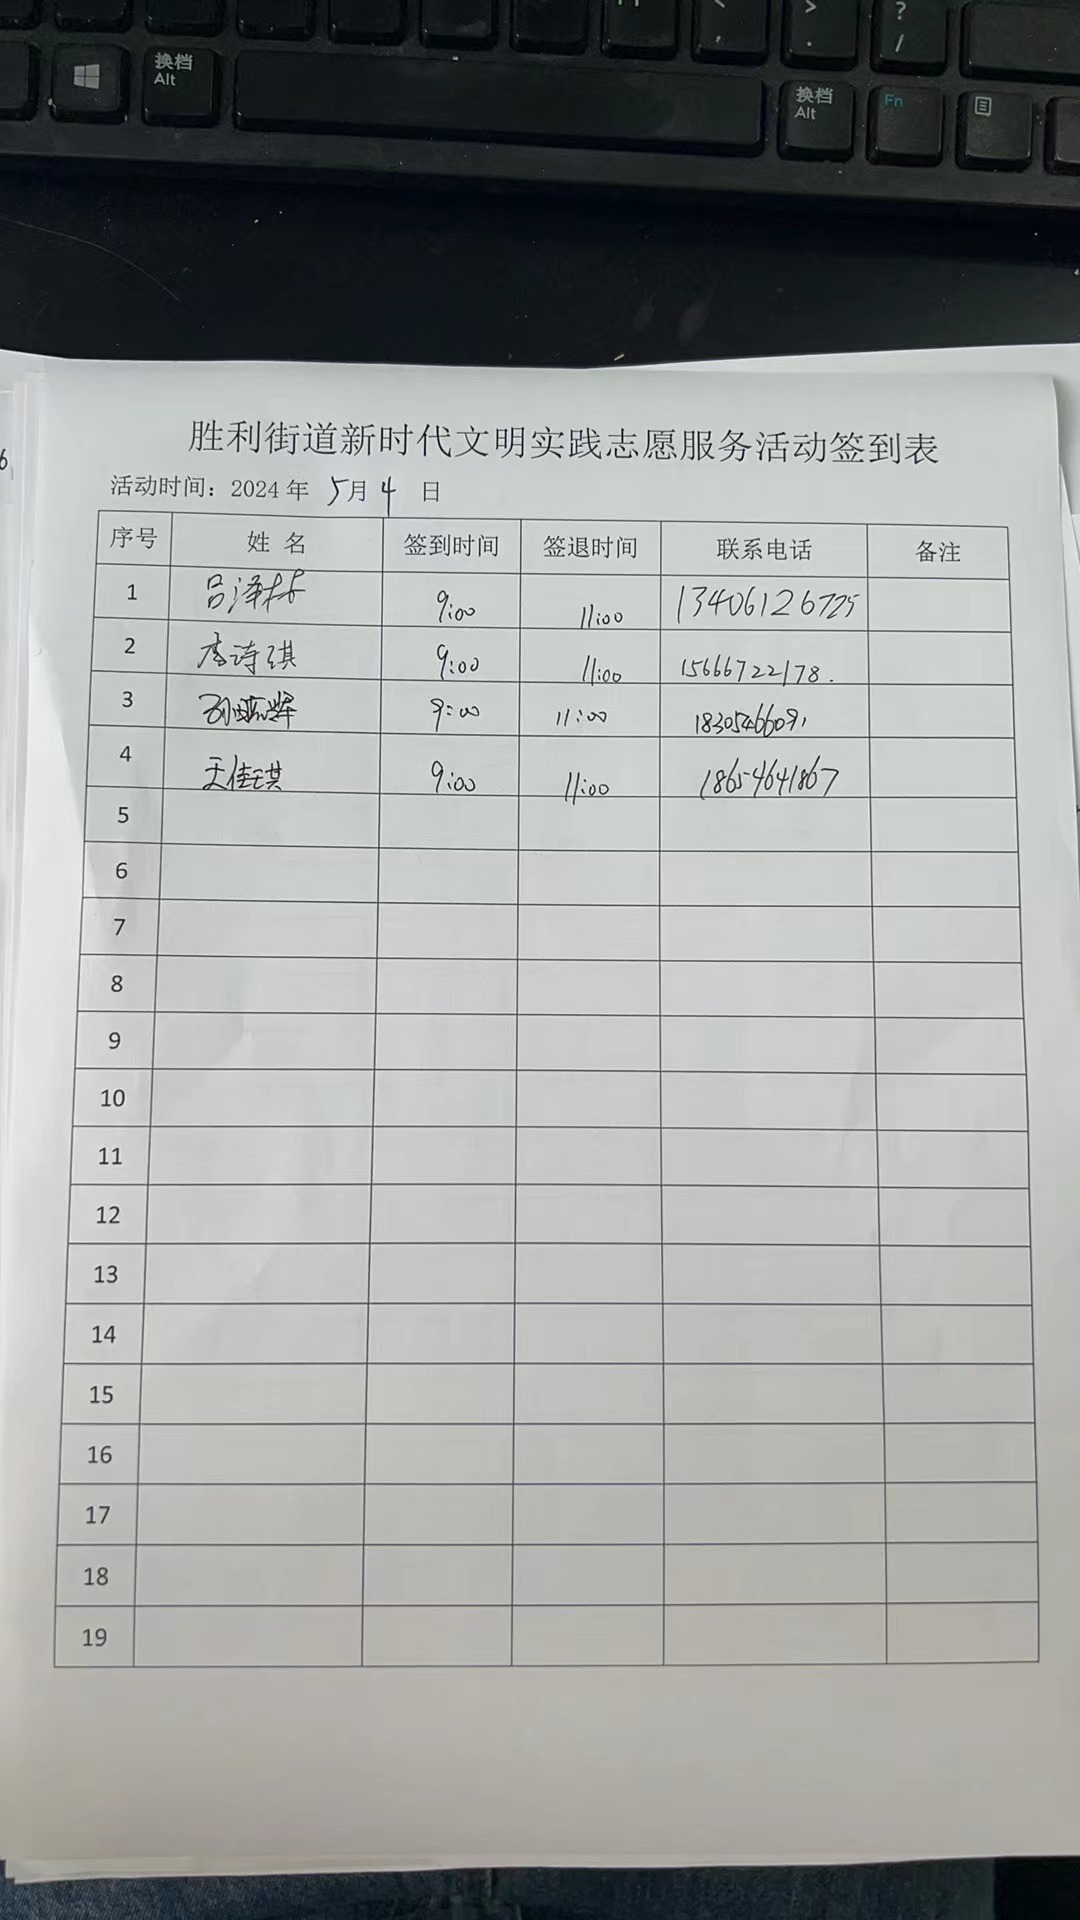 ? /
换档 Alt
换档 Alt
Fn
胜利街道新时代文明实践志愿服务活动签到表
活动时间：2024 年 5月 4 日
序号 姓 名 签到时间 签退时间 联系电话 备注
1 吕泽林 9:00 11:00 13406126725
2 李诗琪 9:00 11:00 15666722178.
3 9:00 11:00 18305466091
4 王佳琪 9:00 11:00 18654641867
5
6
7
8
9
10
11
12
13
14
15
16
17
18
19